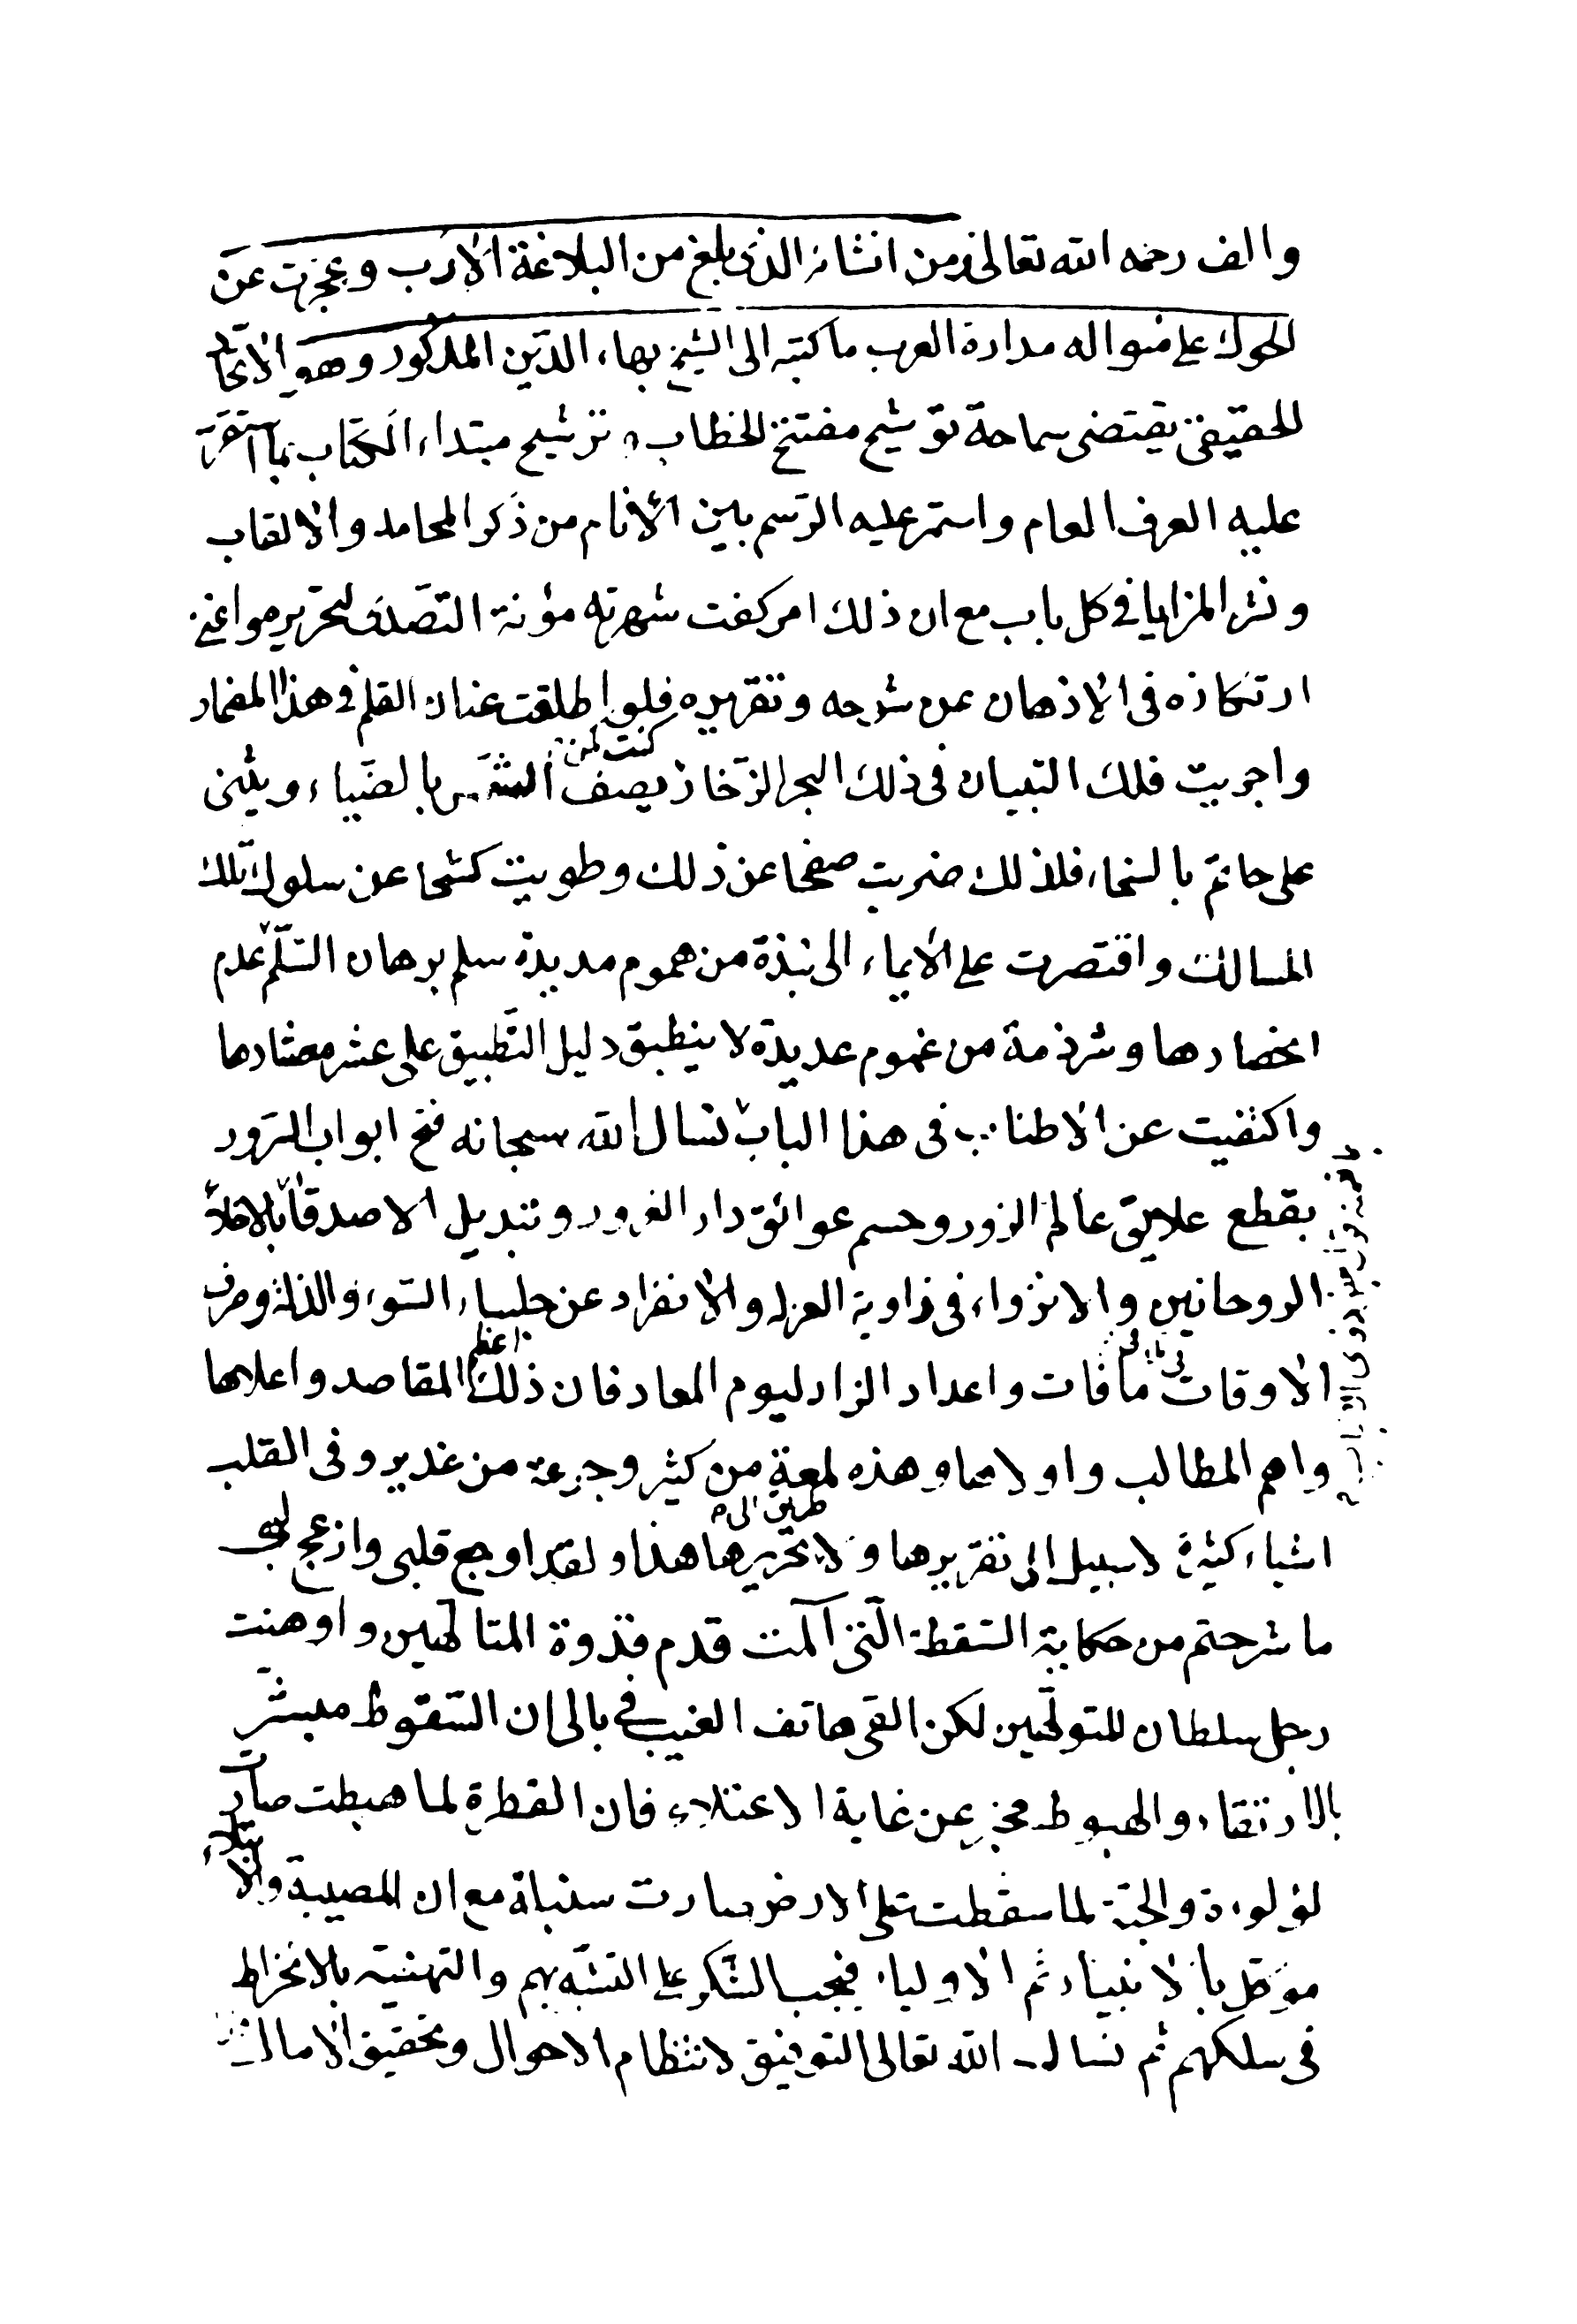 والف رحمه الله تعالى ومن انشائه الذى بلغ من البلاغة الارب وعجزت عن
الحوك على منواله مدارة العرب ما كتبه الى الشيخ بهاء الدّين المذكور وهو الاتحاد
الحقيقى يقتضى سماحة توشيح مفتتح الخطاب و ترشيح مبتداء الكتاب بما استقرّت
عليه العرف العام واستمر عليه الرّسم بين الانام من ذكر المحامد والالقاب
ونشر المزايا فى كل باب مع ان ذلك امر كفت شهرته مؤنة التصدى لتحريره واغنى
ارتكازه فى الاذهان عن شرحه وتقريره فلو اطلقت عنان القلم فى هذا المضمار
واجريت فلك التبيان فى ذلك البحر الزّخار كنت كمن يصف الشّمس بالضّياء ويثنى
على حاتم بالسخاء فلذلك ضربت صفحا عن ذلك وطويت كشحا عن سلوك تلك
المسالك واقتصرت على الايماء الى نبذة من هموم مديدة سلم برهان السّلّم عدم
انحصارها وشرذمة من غموم عديدة لا ينطبق دليل التّطبيق على عشر معشارها
واكتفيت عن الاطناب فى هذا الباب نسال الله سبحانه فتح ابواب السّرور
بقطع علايق عالم الزور وحسم عوائق دار الغرور وتبديل الاصدقاء بالاخلاء
الروحانين والانزواء فى زاوية العزلة والانفراد عن جلساء السّوء والذلة وصرف
الاوقات فى تلافى ما فات واعداد الزاد ليوم المعاد فان ذلك اعظم المقاصد واعلاها
واهم المطالب واولاها وهذه لمعة من كثير وجرعة من غدير وفى القلب
اشياء كثيرة لا سبيل الى تقريرها ولا طريق الى تحريرها هذا ولقد اوجع قلبى وازعج لبى
ما شرحتم من حكاية السّقطة الّتى آلمت قدم قدوة المتالهين واوهنت
رجل سلطان المتولّهين لكن القى هاتف الغيب فى بالى ان السّقوط مبشّر
بالارتقاء والهبوط مخبر عن غاية الاعتلاء فان القطرة لما هبطت صارت
لؤلوءة والحبّة لما سقطت على الارض صارت سنبلة مع ان المصيبة والابتلاء
موكّل بالانبياء ثم الاولياء فيجب الشّكر على التشبّه بهم والتهنية بالانخراط
فى سلكهم ثم نسال الله تعالى التوفيق لانتظام الاحوال وتحقيق الامال